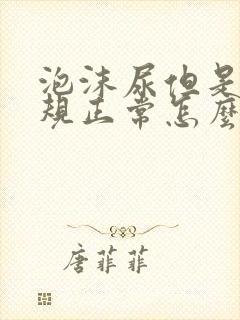 泡沫尿但是
规正常怎麽
唐菲菲